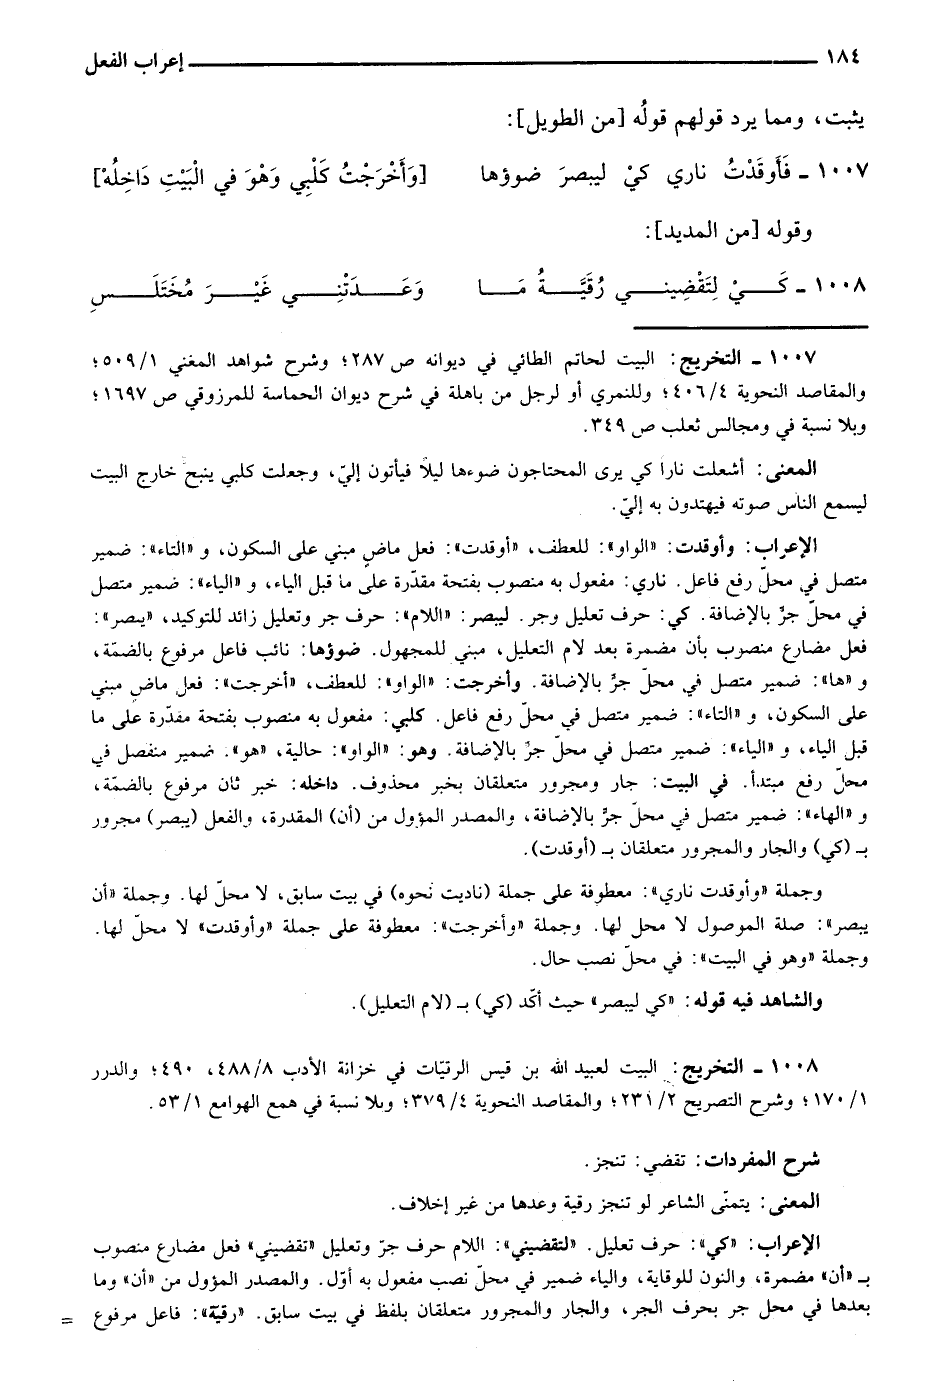 ١٨٤ إعراب الفعل
يثبت، ومما يرد قولهم قولُه [من الطويل]:
١٠٠٧ ـ فَأَوقَدْتُ ناري كيْ ليبصرَ ضوؤها [وَأَخْرَجْتُ كَلْبِي وَهْوَ في الْبَيْتِ دَاخِلُهْ]
وقوله [من المديد]:
١٠٠٨ ـ كَيْ لِتَقْضِيني رُقَيَّةُ مَا وَعَدَتْنِي غَيْرَ مُخْتَلَسِ
١٠٠٧ ـ التخريج: البيت لحاتم الطائي في ديوانه ص ٢٨٧؛ وشرح شواهد المغني ٥٠٩/١؛
والمقاصد النحوية ٤٠٦/٤؛ وللنمري أو لرجل من باهلة في شرح ديوان الحماسة للمرزوقي ص ١٦٩٧؛
وبلا نسبة في ومجالس ثعلب ص ٣٤٩.
المعنى: أشعلت ناراً كي يرى المحتاجون ضوءها ليلاً فيأتون إليّ، وجعلت كلبي ينبح خارج البيت
ليسمع الناس صوته فيهتدون به إليّ.
الإعراب: وأوقدت: «الواو»: للعطف، «أوقدت»: فعل ماضٍ مبني على السكون، و «التاء»: ضمير
متصل في محلّ رفع فاعل. ناري: مفعول به منصوب بفتحة مقدّرة على ما قبل الياء، و «الياء»: ضمير متصل
في محلّ جرٍّ بالإضافة. كي: حرف تعليل وجر. ليبصر: «اللام»: حرف جر وتعليل زائد للتوكيد، «يبصر»:
فعل مضارع منصوب بأن مضمرة بعد لام التعليل، مبني للمجهول. ضوؤها: نائب فاعل مرفوع بالضمّة،
و «ها»: ضمير متصل في محلّ جرٍّ بالإضافة. وأخرجت: «الواو»: للعطف، «أخرجت»: فعل ماضٍ مبني
على السكون، و «التاء»: ضمير متصل في محلّ رفع فاعل. كلبي: مفعول به منصوب بفتحة مقدّرة على ما
قبل الياء، و «الياء»: ضمير متصل في محلّ جرٍّ بالإضافة. وهو: «الواو»: حالية، «هو». ضمير منفصل في
محلّ رفع مبتدأ. في البيت: جار ومجرور متعلقان بخبر محذوف. داخله: خبر ثان مرفوع بالضمّة،
و «الهاء»: ضمير متصل في محلّ جرٍّ بالإضافة، والمصدر المؤول من (أن) المقدرة، والفعل (يبصر) مجرور
بـ (كي) والجار والمجرور متعلقان بـ (أوقدت).
وجملة «وأوقدت ناري»: معطوفة على جملة (ناديت نحوه) في بيت سابق، لا محلّ لها. وجملة «أن
يبصر»: صلة الموصول لا محل لها. وجملة «وأخرجت»: معطوفة على جملة «وأوقدت» لا محلّ لها.
وجملة «وهو في البيت»: في محلّ نصب حال.
والشاهد فيه قوله: «كي ليبصر» حيث أكّد (كي) بـ (لام التعليل).
١٠٠٨ ـ التخريج: البيت لعبيد الله بن قيس الرقيّات في خزانة الأدب ٤٨٨/٨، ٤٩٠؛ والدرر
١٧٠/١؛ وشرح التصريح ٢٣١/٢؛ والمقاصد النحوية ٣٧٩/٤؛ وبلا نسبة في همع الهوامع ٥٣/١.
شرح المفردات: تقضي: تنجز.
المعنى: يتمنّى الشاعر لو تنجز رقية وعدها من غير إخلاف.
الإعراب: «كي»: حرف تعليل. «لتقضيني»: اللام حرف جرّ وتعليل «تقضيني» فعل مضارع منصوب
بـ «أن» مضمرة، والنون للوقاية، والياء ضمير في محلّ نصب مفعول به أوّل. والمصدر المؤول من «أن» وما
بعدها في محل جر بحرف الجر، والجار والمجرور متعلقان بلفظ في بيت سابق. «رقيّة»: فاعل مرفوع =